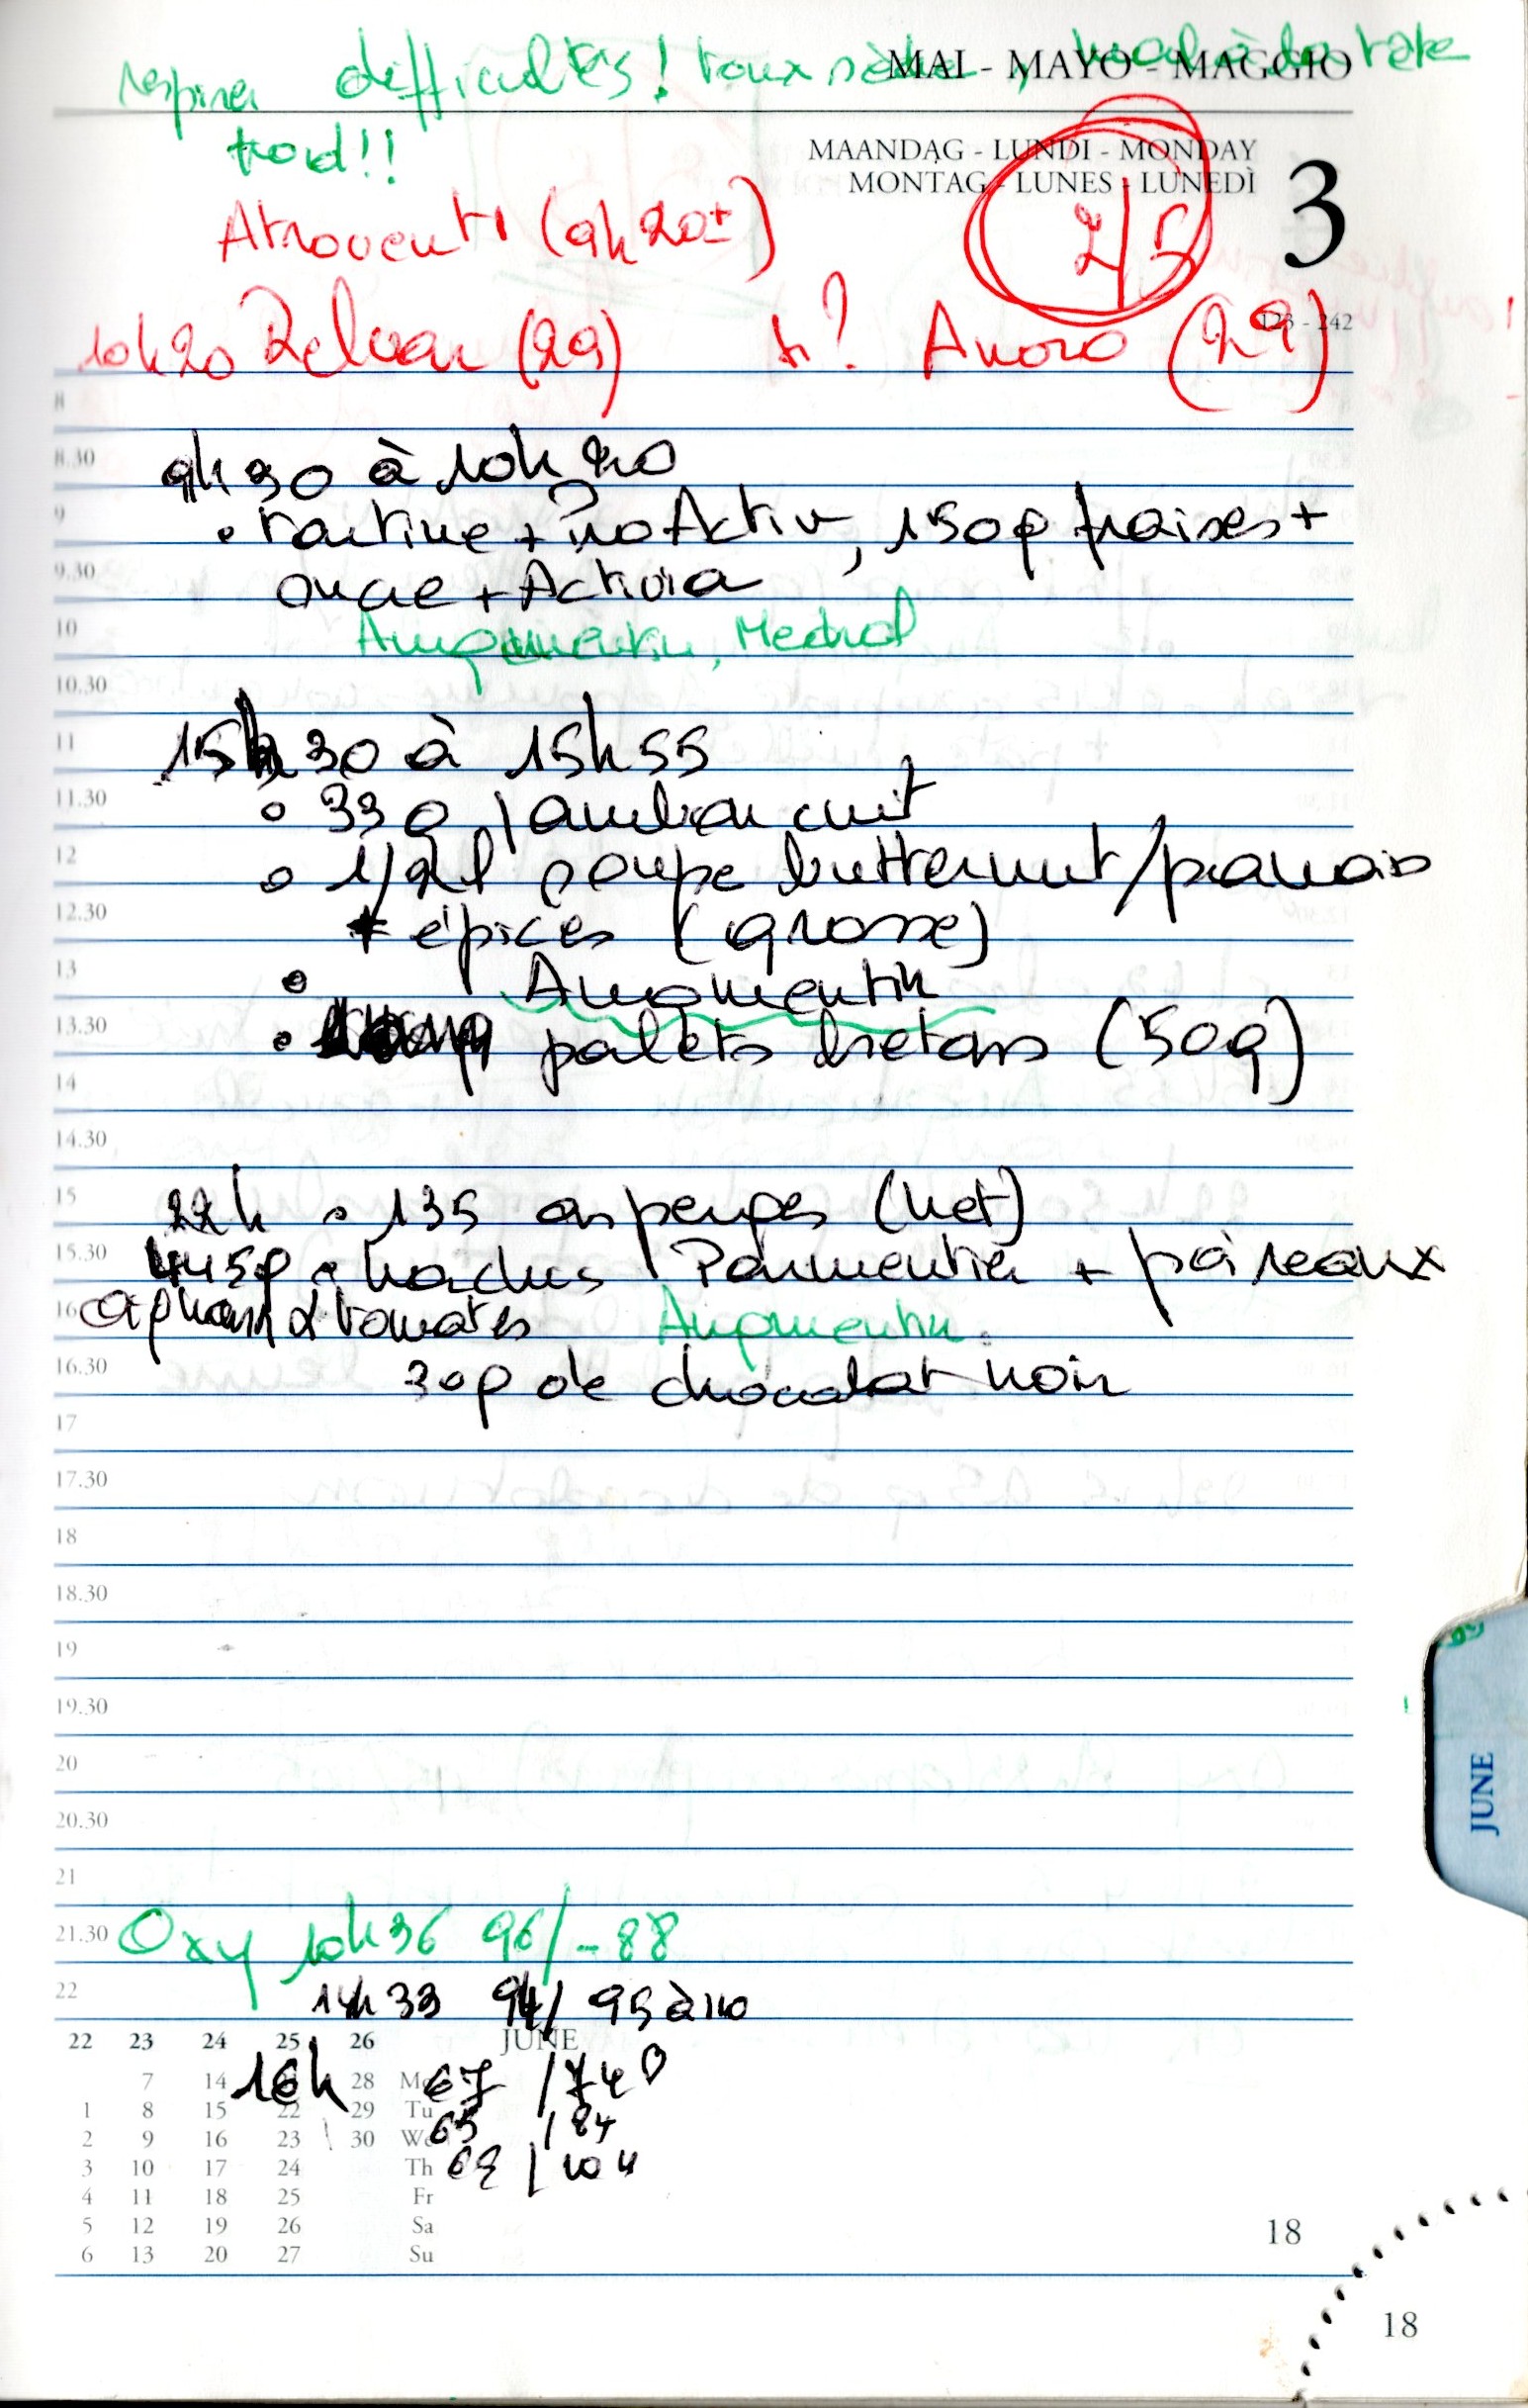 respirer difficultés! toux sèche, mal à la tête
MAI - MAYO - MAGGIO
froid!!
MAANDAG - LUNDI - MONDAY
MONTAG - LUNES - LUNEDÌ
3
Atrovent (9h20±)
2/5
123 - 242
10h20 Relvar (29) ? Anoro (29)
8
8.30
9h30 à 10h20
9
• tartine + ProActiv, 150g fraises +
9.30
sucre + Activia
10
Augmentin, Medrol
10.30
11
15h30 à 15h55
11.30
• 330 jambon cuit
12
• 1/2l soupe butternut/panais
12.30
+ épices (grosse)
13
• Augmentin
13.30
• palets bretons (50g)
14
14.30
15
22h • 135 asperges (net)
15.30
445g • hachis Parmentier + poireaux
16
2 tomates Augmentin
16.30
30g de chocolat noir
17
17.30
18
18.30
19
19.30
20
20.30
21
21.30
Oxy 10h36 96/-88
22
14h33 94/95 à 110
22 23 24 25 26 JUNE
16h 67 /74
65 /84
69 /104
7 14 28 Mo
1 8 15 22 29 Tu
2 9 16 23 30 We
3 10 17 24 Th
4 11 18 25 Fr
5 12 19 26 Sa
6 13 20 27 Su
18
18
JUNE